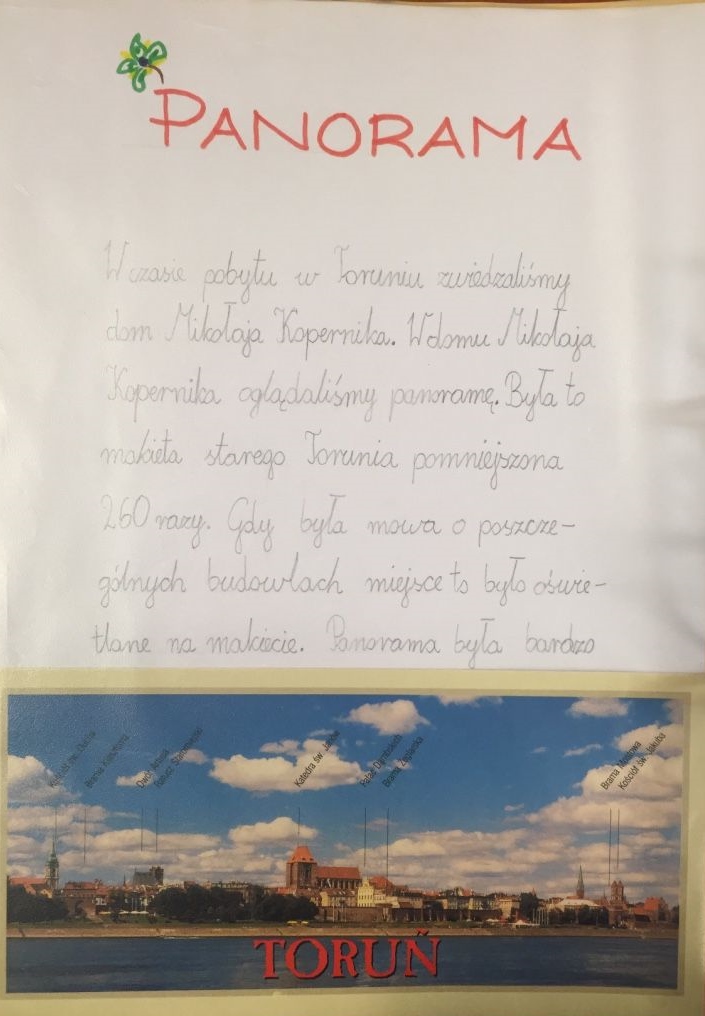 PANORAMA
W czasie pobytu w Toruniu zwiedzaliśmy
dom Mikołaja Kopernika. W domu Mikołaja
Kopernika oglądaliśmy panoramę. Była to
makieta starego Torunia pomniejszona
260 razy. Gdy była mowa o poszcze-
gólnych budowlach miejsce to było oświe-
tlane na makiecie. Panorama była bardzo
Kościół św. Ducha
Brama Klasztorna
Dwór Artusa
Ratusz Staromiejski
Katedra św. Janów
Pałac Dąmbskich
Brama Żeglarska
Brama Mostowa
Kościół św. Jakuba
TORUŃ